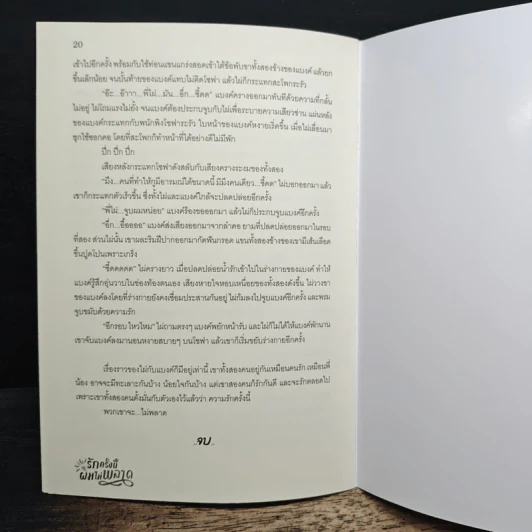 20
เข้าไปอีกครั้ง พร้อมกับใช้ท่อนแขนแกร่งสอดเข้าใต้ข้อพับขาทั้งสองข้างของแบงค์ แล้วยก
ขึ้นเล็กน้อย จนบั้นท้ายของแบงค์แทบไม่ติดโซฟา แล้วไผ่ก็กระแทกสะโพกระรัว
"อ๊ะ...อ๊าาา...พี่ไผ่...มัน...อึ้ก...ซี้ดด" แบงค์ครางออกมาทันทีด้วยความที่กลั้น
ไม่อยู่ ไผ่โถมแรงไม่ยั้ง จนแบงค์ต้องประกบจูบกับไผ่เพื่อระบายความเสียวซ่าน แผ่นหลัง
ของแบงค์กระแทกกับพนักพิงโซฟาระรัว ใบหน้าของแบงค์หงายเริ่ดขึ้น เมื่อไผ่เลื่อนมา
ซุกไซ้ซอกคอ โดยที่สะโพกก็ทำหน้าที่ได้อย่างดีไม่มีพัก
ปึ้ก ปึ้ก ปึ้ก
เสียงหลังกระแทกโซฟาดังสลับกับเสียงครางระงมของทั้งสอง
"มึง...คนที่ทำให้กูมีอารมณ์ได้ขนาดนี้ มีมึงคนเดียว...ซี้ดด" ไผ่บอกออกมา แล้ว
เขาก็กระแทกตัวเร็วขึ้น ซึ่งทั้งไผ่และแบงค์ใกล้จะปลดปล่อยอีกครั้ง
"พี่ไผ่...จูบผมหน่อย" แบงค์ร้องขอออกมา แล้วไผ่ก็ประกบจูบแบงค์อีกครั้ง
"อึ้ก...อื้อออออ" แบงค์ส่งเสียงออกมาจากลำคอ ยามที่ปลดปล่อยออกมาในรอบ
ที่สอง ส่วนไผ่นั้น เขาผละริมฝีปากออกมากัดฟันกรอด แขนทั้งสองข้างของเขามีเส้นเลือด
ขึ้นปูดโปนเพราะเกร็ง
"ซี้ดดดดด" ไผ่ครางยาว เมื่อปลดปล่อยน้ำรักเข้าไปในร่างกายของแบงค์ ทำให้
แบงค์รู้สึกอุ่นวาบในช่องท้องตนเอง เสียงหายใจหอบเหนื่อยของทั้งสองดังขึ้น ไผ่วางขา
ของแบงค์ลงโดยที่ร่างกายยังคงเชื่อมประสานกันอยู่ ไผ่ก้มลงไปจูบแบงค์อีกครั้ง และพรม
จูบขมับด้วยความรัก
"อีกรอบ ไหวไหม" ไผ่ถามตรงๆ แบงค์พยักหน้ารับ และไผ่ก็ไม่ได้ให้แบงค์พักนาน
เขาจับแบงค์ลงมานอนหงายสบายๆ บนโซฟา แล้วเขาก็เริ่มขยับร่างกายอีกครั้ง
เรื่องราวของไผ่กับแบงค์ก็มีอยู่เท่านี้ เขาทั้งสองคนอยู่กันเหมือนคนรัก เหมือนพี่
น้อง อาจจะมีทะเลาะกันบ้าง น้อยใจกันบ้าง แต่เขาสองคนก็รักกันดี และจะรักตลอดไป
เพราะเขาทั้งสองคนตั้งมั่นกับตัวเองไว้แล้วว่า ความรักครั้งนี้
พวกเขาจะ...ไม่พลาด
..จบ..
รักครั้งนี้
ผมไม่พลาด